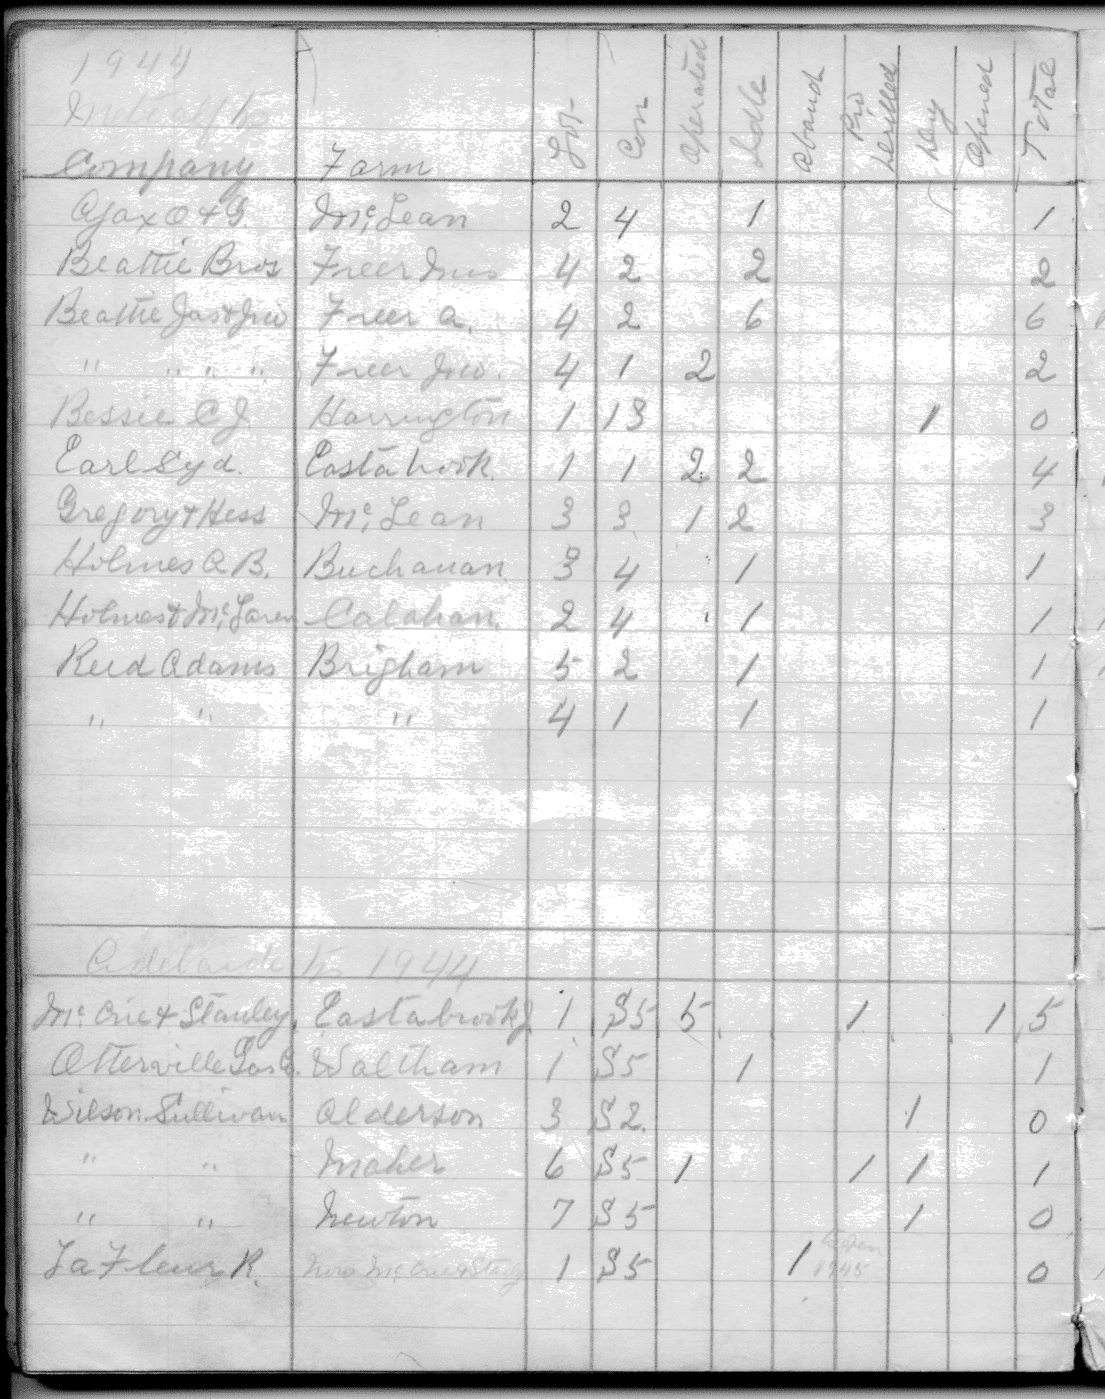 1944
Metcalf Tp
Company Farm Lot Con Operated Idle Aband Pro Drilled Dry Opened Total
Ajax O & G. Mc Lean 2 4 1 1
Beattie Bros Freer Jno 4 2 2 2
Beattie Jas & Jno Freer A. 4 2 6 6
" " " " Freer Jno. 4 1 2 2
Bessie C J Harrington 1 13 1 0
Earl Syd. Eastabrook. 1 1 2 2 4
Gregory & Hess Mc Lean 3 3 1 2 3
Holmes A B. Buchanan 3 4 1 1
Holmes & Mc Laren Calahan. 2 4 1 1
Reid Adams Brigham 5 2 1 1
" " " 4 1 1 1
Adelaide Tp 1944
Mc Crie & Stanley. Eastabrook J 1 S5 5 1 1 5
Otterville Gas Co. Waltham 1 S5 1 1
Wilson Sullivan Alderson 3 S2. 1 0
" " Maher 6 S5 1 1 1 1
" " Newton 7 S5 1 0
La Fleur R. Now Mc Crie & Stanley 1 S5 1 1945 0